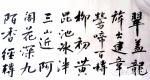 翠蓋龍
旂出建章
鶯啼百轉
柳初黃
昆池冰泮
三山近阿
閣花深九
陌香徑轉